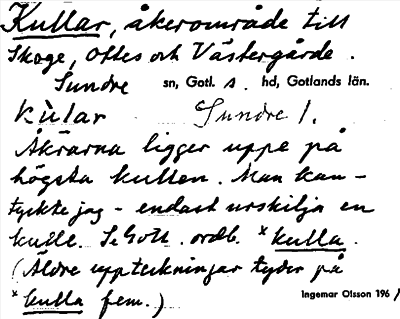 Kullar, åkerområde till
Skoge, Ottes och Västergårde.
Sundre sn, Gotl. s. hd, Gotlands län.
kùlar Sundre 1.
Åkrarna ligger uppe på
högsta kullen. Man kan –
tyckte jag – endast urskilja en
kulle. Se Gotl. ordb. *kulla.
(Äldre uppteckningar tyder på
*kulla fem.)
Ingemar Olsson 196